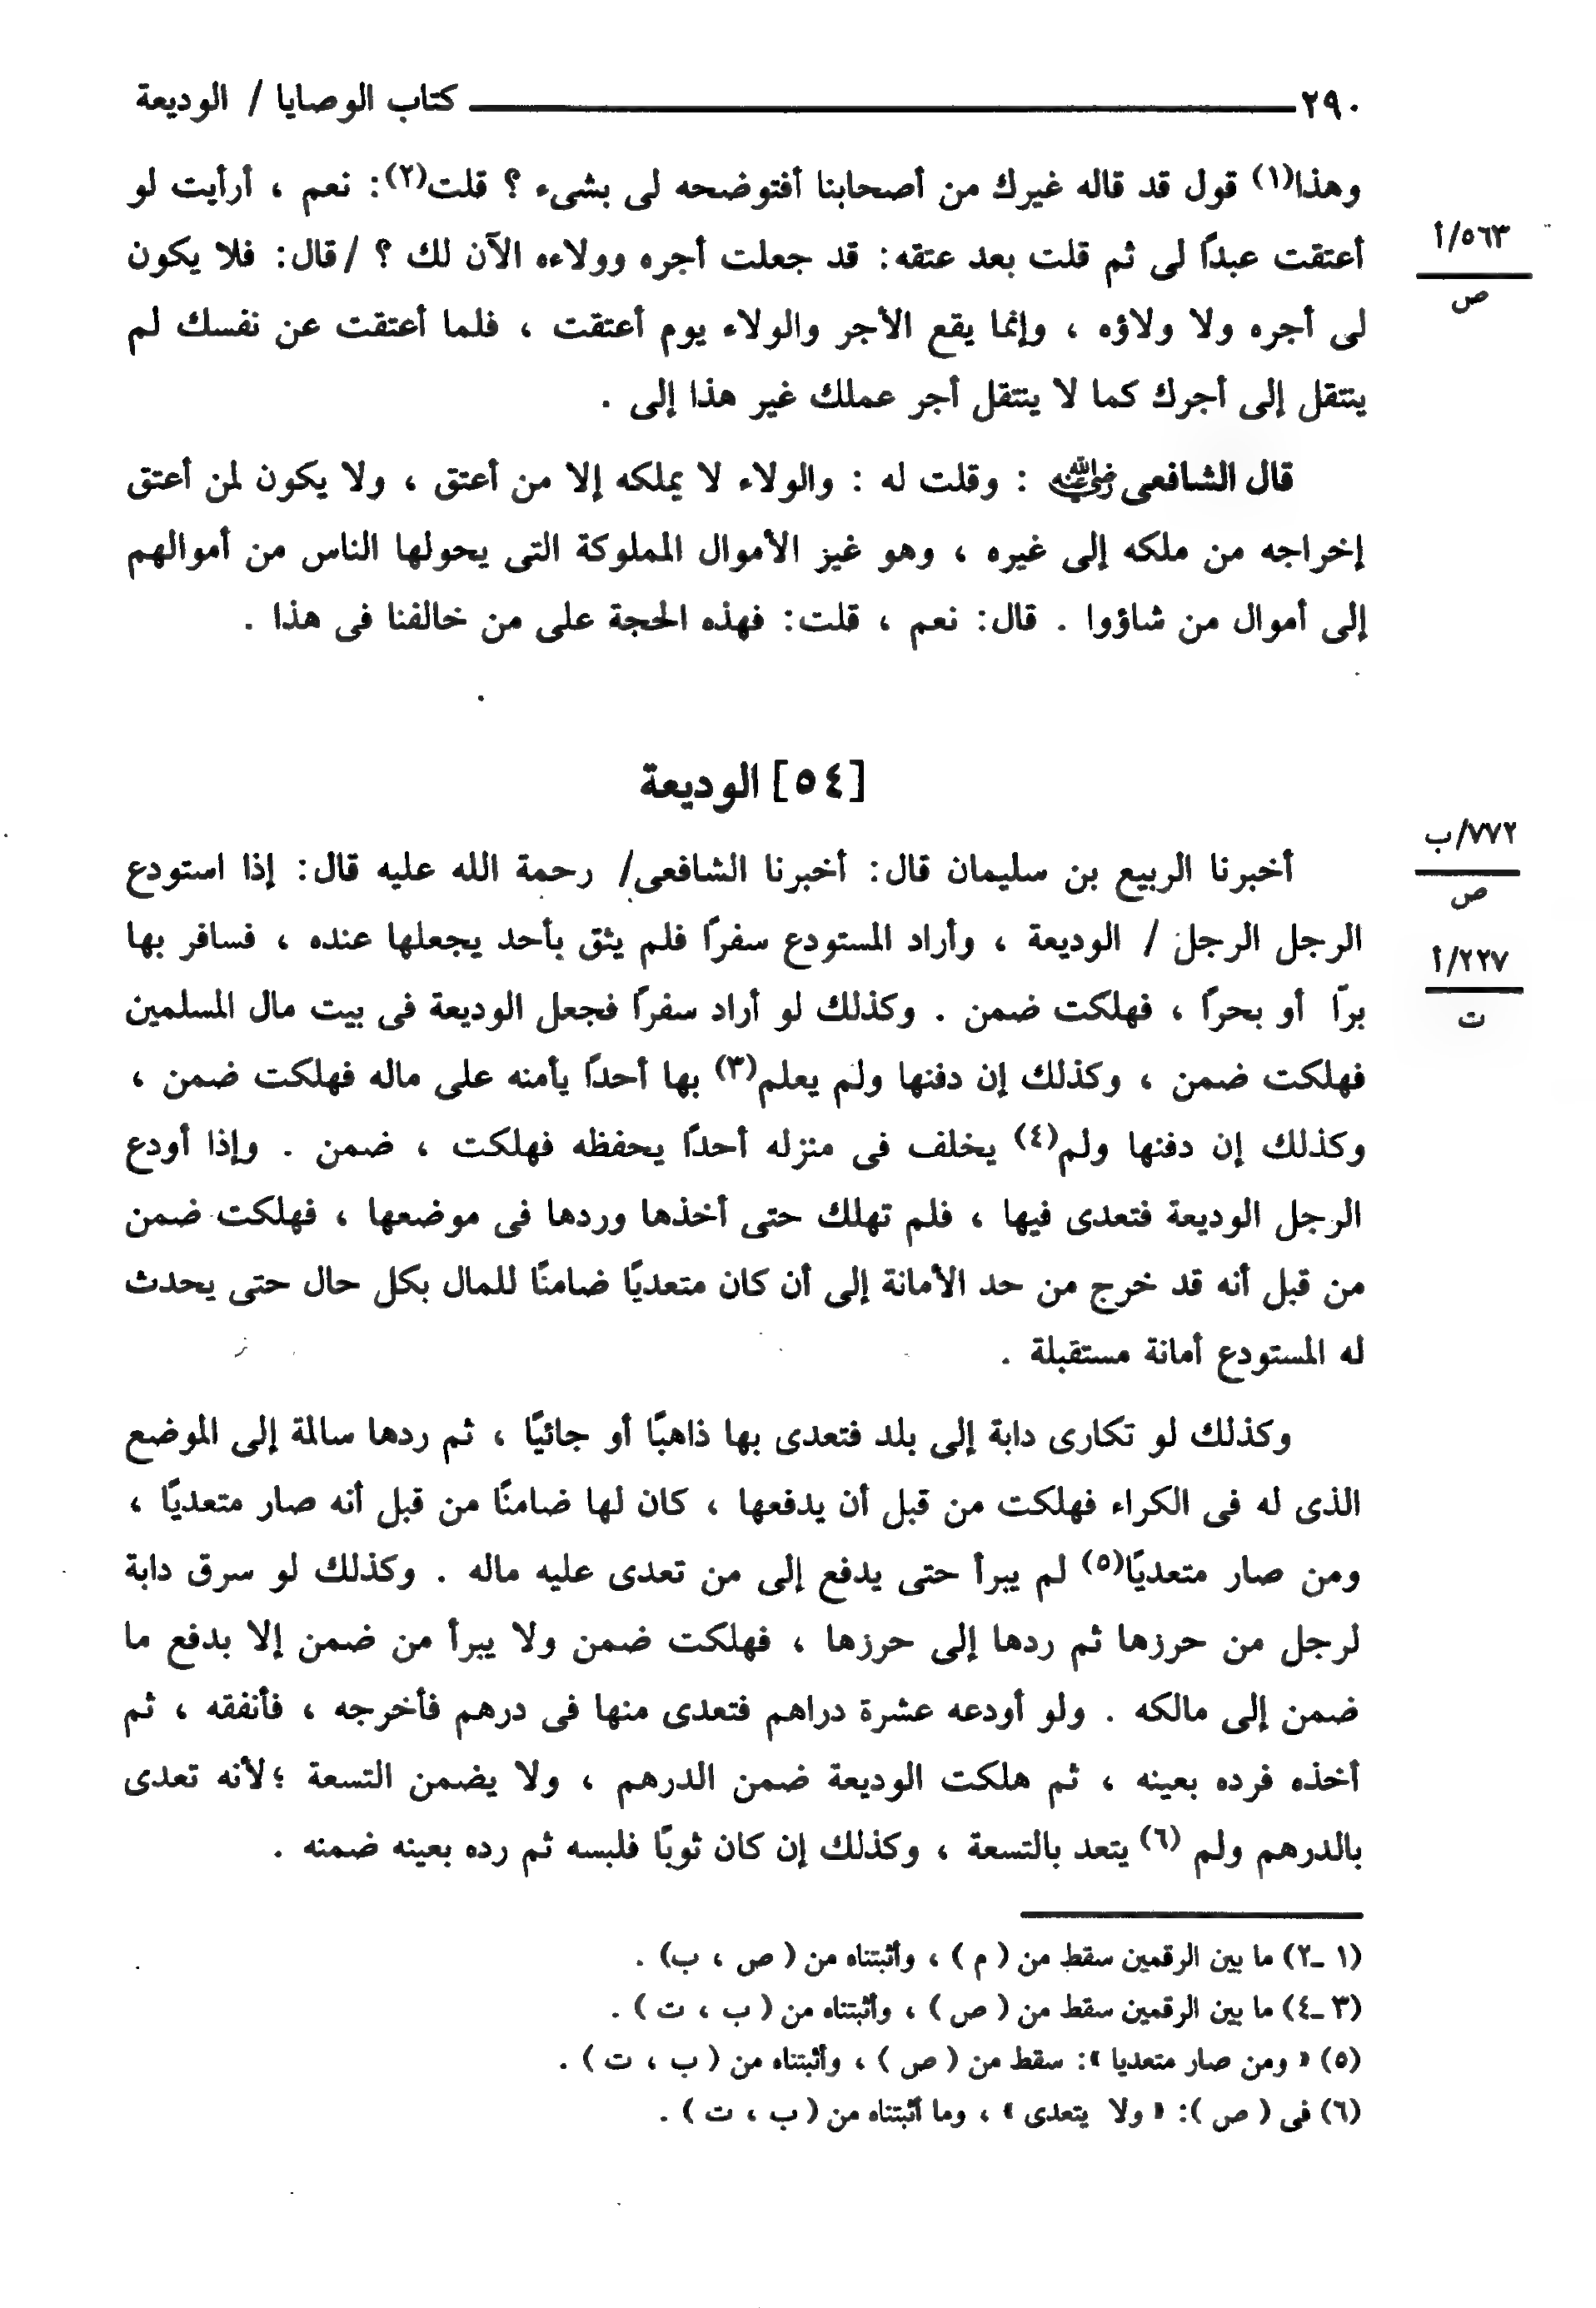 ٢٩٠ كتاب الوصايا / الوديعة
وهذا(١) قول قد قاله غيرك من أصحابنا أفتوضحه لى بشىء ؟ قلت(٢): نعم ، أرأيت لو
أعتقت عبدًا لى ثم قلت بعد عتقه: قد جعلت أجره وولاءه الآن لك ؟ /قال: فلا يكون
٥٦٣/أ
ص
لى أجره ولا ولاؤه ، وإنما يقع الأجر والولاء يوم أعتقت ، فلما أعتقت عن نفسك لم
ينتقل إلى أجرك كما لا ينتقل أجر عملك غير هذا إلى .
قال الشافعى رضي الله عنه : وقلت له : والولاء لا يملكه إلا من أعتق ، ولا يكون لمن أعتق
إخراجه من ملكه إلى غيره ، وهو غيز الأموال المملوكة التى يحولها الناس من أموالهم
إلى أموال من شاؤوا . قال: نعم ، قلت: فهذه الحجة على من خالفنا فى هذا .
[٥٤] الوديعة
٧٧٢/ب
ص
أخبرنا الربيع بن سليمان قال: أخبرنا الشافعى/ رحمة الله عليه قال: إذا استودع
الرجل الرجل / الوديعة ، وأراد المستودع سفرًا فلم يثق بأحد يجعلها عنده ، فسافر بها
٢٢٧/أ
ت
برًا أو بحرًا ، فهلكت ضمن . وكذلك لو أراد سفرًا فجعل الوديعة فى بيت مال المسلمين
فهلكت ضمن ، وكذلك إن دفنها ولم يعلم(٣) بها أحدًا يأمنه على ماله فهلكت ضمن ،
وكذلك إن دفنها ولم(٤) يخلف فى منزله أحدًا يحفظه فهلكت ، ضمن . وإذا أودع
الرجل الوديعة فتعدى فيها ، فلم تهلك حتى أخذها وردها فى موضعها ، فهلكت ضمن
من قبل أنه قد خرج من حد الأمانة إلى أن كان متعديًا ضامنًا للمال بكل حال حتى يحدث
له المستودع أمانة مستقبلة .
وكذلك لو تكارى دابة إلى بلد فتعدى بها ذاهبًا أو جائيًا ، ثم ردها سالمة إلى الموضع
الذى له فى الكراء فهلكت من قبل أن يدفعها ، كان لها ضامنًا من قبل أنه صار متعديًا ،
ومن صار متعديًا(٥) لم يبرأ حتى يدفع إلى من تعدى عليه ماله . وكذلك لو سرق دابة
لرجل من حرزها ثم ردها إلى حرزها ، فهلكت ضمن ولا يبرأ من ضمن إلا بدفع ما
ضمن إلى مالكه . ولو أودعه عشرة دراهم فتعدى منها فى درهم فأخرجه ، فأنفقه ، ثم
أخذه فرده بعينه ، ثم هلكت الوديعة ضمن الدرهم ، ولا يضمن التسعة ؛لأنه تعدى
بالدرهم ولم (٦) يتعد بالتسعة ، وكذلك إن كان ثوبًا فلبسه ثم رده بعينه ضمنه .
(١ ـ٢) ما بين الرقمين سقط من ( م ) ، وأثبتناه من ( ص ، ب) .
(٣ ـ٤) ما بين الرقمين سقط من ( ص ) ، وأثبتناه من ( ب ، ت ) .
(٥) « ومن صار متعديا »: سقط من ( ص ) ، وأثبتناه من ( ب ، ت ) .
(٦) فى ( ص ): « ولا يتعدى » ، وما أثبتناه من ( ب ، ت ) .